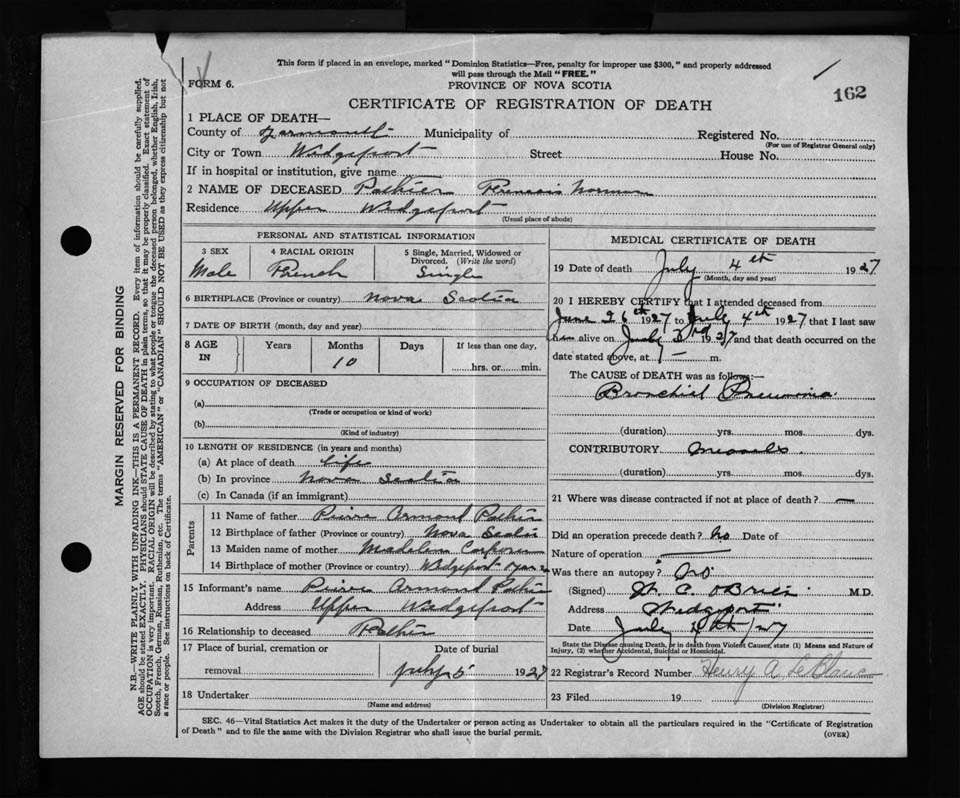 This form if placed in an envelope, marked "Dominion Statistics—Free, penalty for improper use $300," and properly addressed
will pass through the Mail "FREE."
FORM 6.
PROVINCE OF NOVA SCOTIA
162
CERTIFICATE OF REGISTRATION OF DEATH
1 PLACE OF DEATH—
County of Yarmouth Municipality of Registered No.
(For use of Registrar General only)
City or Town Wedgeport Street House No.
If in hospital or institution, give name
2 NAME OF DECEASED Pothier Francis Norman
Residence Upper Wedgeport
(Usual place of abode)
PERSONAL AND STATISTICAL INFORMATION
3 SEX 4 RACIAL ORIGIN 5 Single, Married, Widowed or
Divorced. (Write the word)
Male French Single
6 BIRTHPLACE (Province or country) Nova Scotia
7 DATE OF BIRTH (month, day and year)
8 AGE IN Years Months Days If less than one day,
10 hrs. or min.
9 OCCUPATION OF DECEASED
(a)
(Trade or occupation or kind of work)
(b)
(Kind of industry)
10 LENGTH OF RESIDENCE (in years and months)
(a) At place of death life
(b) In province Nova Scotia
(c) In Canada (if an immigrant)
Parents
11 Name of father Pierre Armond Pothier
12 Birthplace of father (Province or country) Nova Scotia
13 Maiden name of mother
14 Birthplace of mother (Province or country) Wedgeport
15 Informant's name Pierre Armond Pothier
Address Upper Wedgeport
16 Relationship to deceased Father
17 Place of burial, cremation or Date of burial
removal July 5 1927
18 Undertaker
(Name and address)
MEDICAL CERTIFICATE OF DEATH
19 Date of death July 4th 1927
(Month, day and year)
20 I HEREBY CERTIFY that I attended deceased from
June 26th 1927 to July 4th 1927 that I last saw
him alive on July 3rd 1927 and that death occurred on the
date stated above, at m.
The CAUSE of DEATH was as follows:—
Bronchial Pneumonia
(duration) yrs. mos. dys.
CONTRIBUTORY measles
(duration) yrs. mos. dys.
21 Where was disease contracted if not at place of death? —
Did an operation precede death? No Date of
Nature of operation
Was there an autopsy? No
(Signed) O'Brien M.D.
Address Wedgeport
Date July
State the Disease causing Death, or in death from Violent Causes, state (1) Means and Nature of
Injury, (2) whether Accidental, Suicidal or Homicidal.
22 Registrar's Record Number Henry A. LeBlanc
23 Filed 19
(Division Registrar)
SEC. 46—Vital Statistics Act makes it the duty of the Undertaker or person acting as Undertaker to obtain all the particulars required in the "Certificate of Registration
of Death" and to file the same with the Division Registrar who shall issue the burial permit.
(OVER)
MARGIN RESERVED FOR BINDING
N.B.—WRITE PLAINLY WITH UNFADING INK—THIS IS A PERMANENT RECORD. Every item of information should be carefully supplied.
AGE should be stated EXACTLY. PHYSICIANS should STATE CAUSE OF DEATH in plain terms, so that it may be properly classified. Exact statement of
OCCUPATION is very important. RACIAL ORIGIN will be described by stating to what people or tongue the deceased person belonged, whether English, Irish,
Scotch, French, German, Russian, Ruthenian, etc. The terms "AMERICAN" or "CANADIAN" SHOULD NOT BE USED as they express citizenship but not
a race or people. See instructions on back of Certificate.